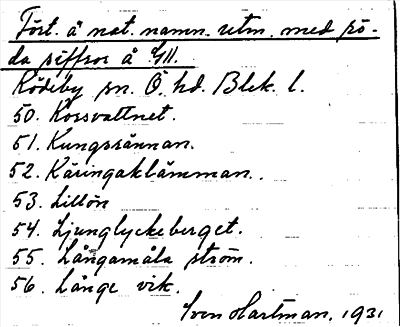 Fört. å nat. namn. utm. med rö-
da siffror å GK.
Rödeby sn. Ö. hd. Blek. l.
50. Korsvattnet.
51. Kungsrännan.
52. Käringaklämman.
53. Lillön
54. Ljunglyckeberget.
55. Långamåla ström.
56. Långe vik.
Sven Hartman, 1931